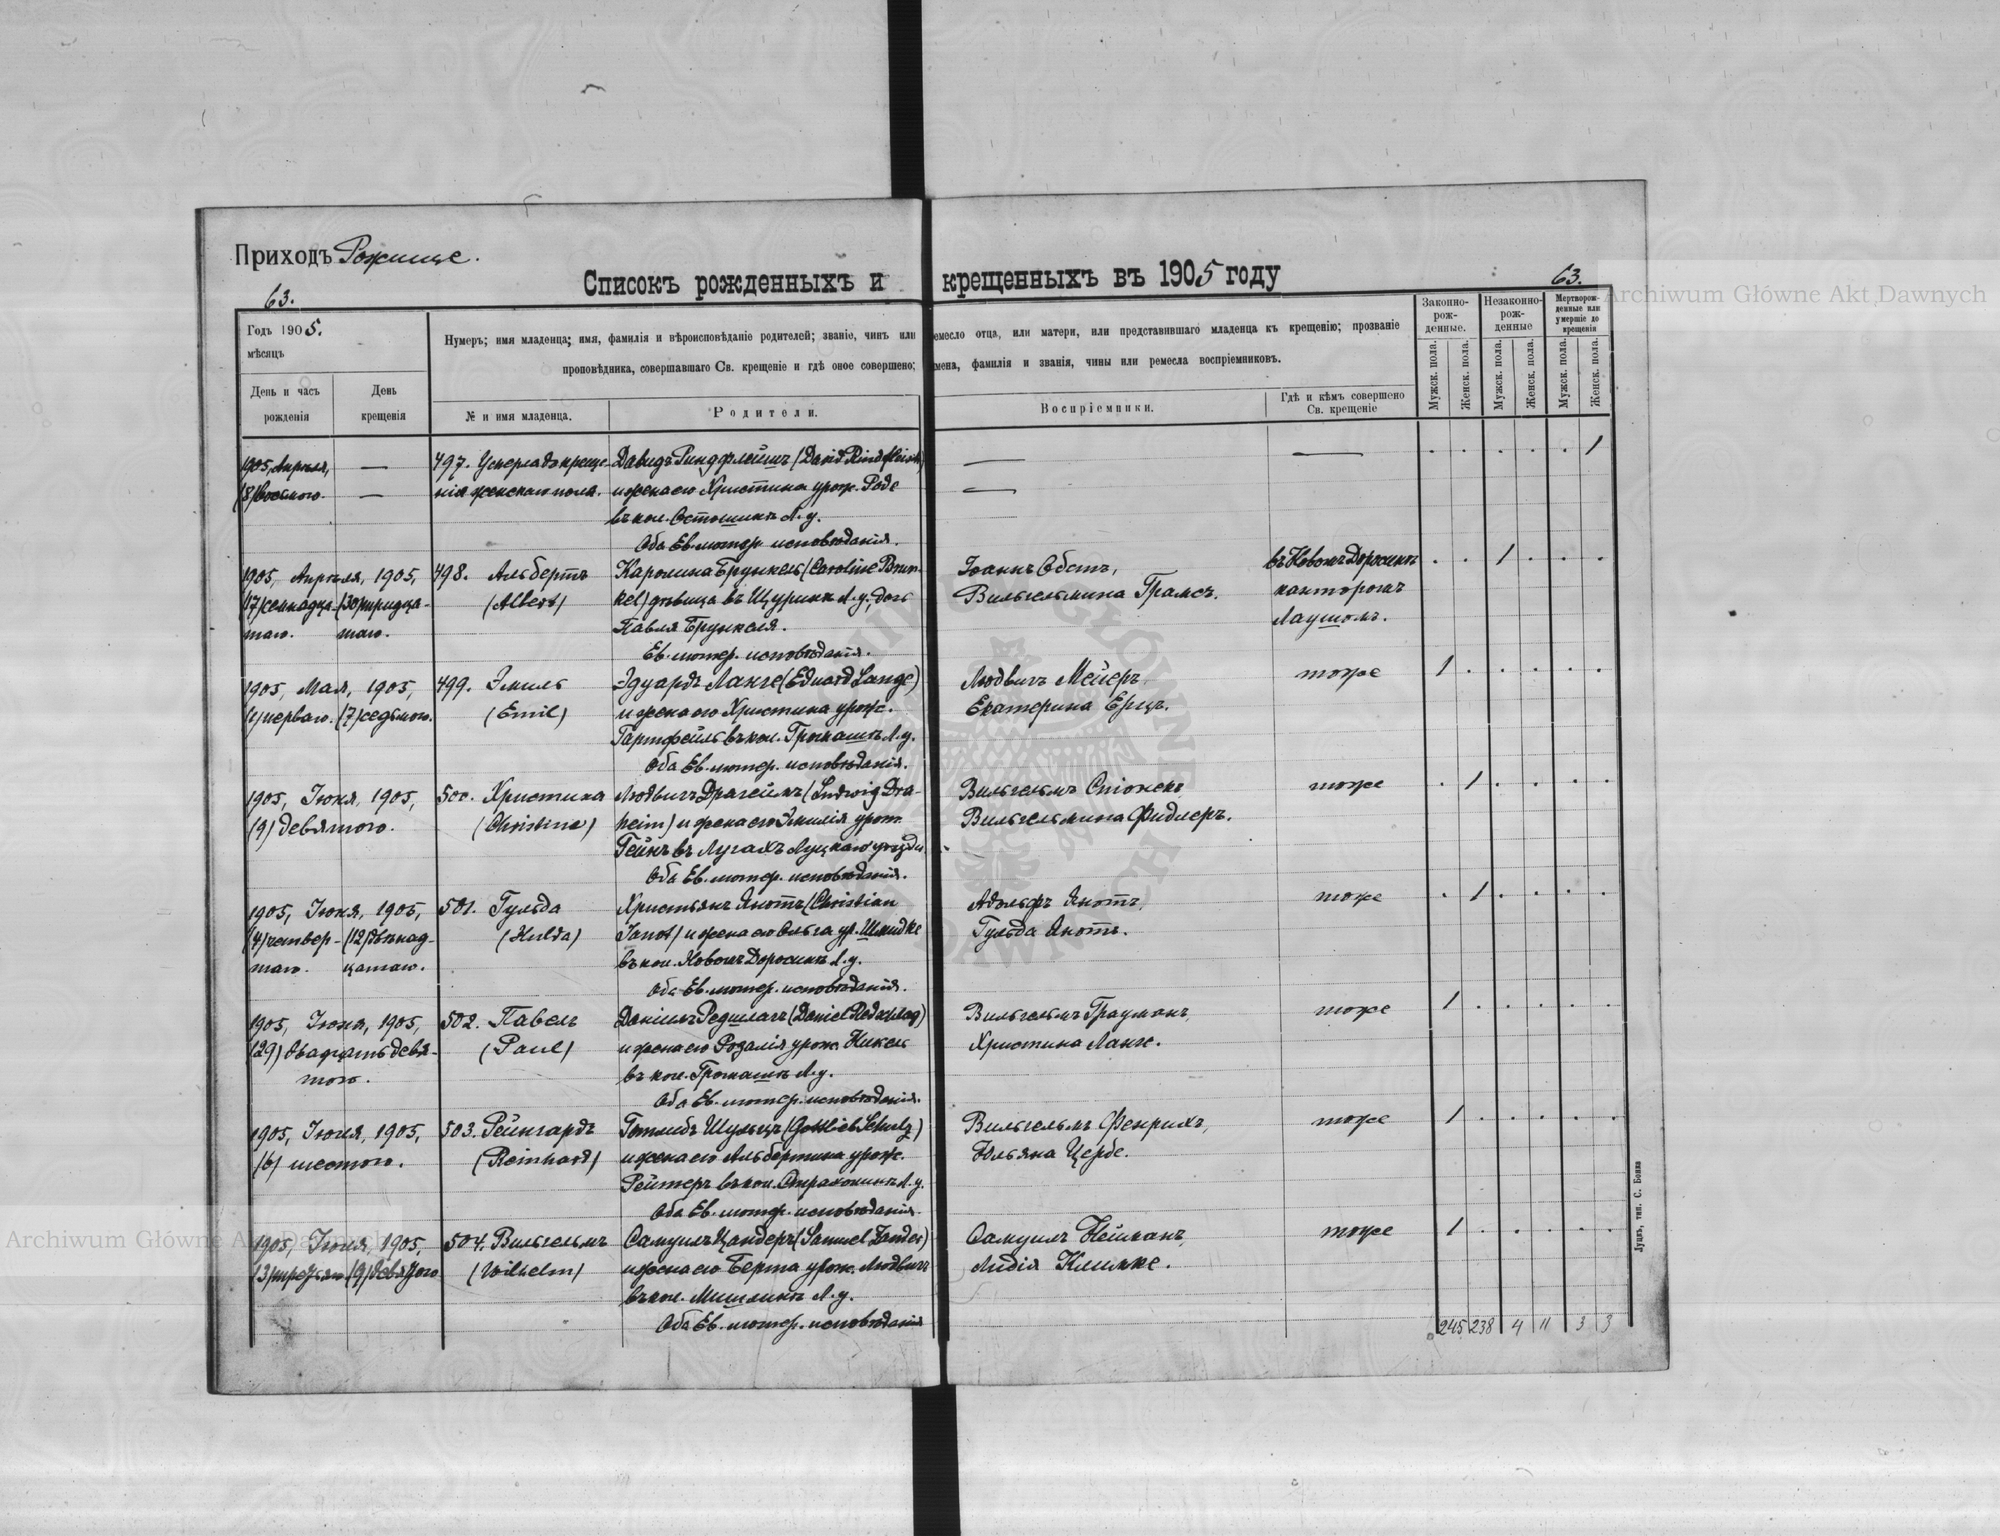 Приходъ Рожище.
Списокъ рожденныхъ и крещенныхъ въ 1905 году
63.
63.
Годъ 1905.
мѣсяцъ
День и часъ рожденія
День крещенія
Нумеръ; имя младенца; имя, фамилія и вѣроисповѣданіе родителей; званіе, чинъ или ремесло отца, или матери, или представившаго младенца къ крещенію; прозваніе
проповѣдника, совершавшаго Св. крещеніе и гдѣ оное совершено; имена, фамилія и званія, чины или ремесла воспріемниковъ.
№ и имя младенца.
Родители.
Воспріемники.
Гдѣ и кѣмъ совершено Св. крещеніе
Законно-рож-денные.
Незаконно-рож-денные
Мертворож-денные или умершіе до крещенія
Мужск. пола.
Женск. пола.
Мужск. пола.
Женск. пола.
Мужск. пола.
Женск. пола.
1905, Апрѣля, — 497. Умерла до креще- Давидъ Риндфлейшъ (David Rindfleisch) — — 1
(8) восьмого. — нія женскаго пола. и жена его Христина урож. Роде —
въ кол. Остошинъ Л. у.
Оба Ев. лютер. исповѣданія.
1905, Апрѣля, 1905, 498. Альбертъ Каролина Брункель (Caroline Brun- Іоаннъ Обстъ, въ Новомъ Доросинѣ 1
(17) семнадца- (30) тридца- (Albert) kel) дѣвица въ Щуринѣ Л. у., дочь Вильгельмина Грамсъ. канторомъ
таго. таго. Павла Брункеля. Лаушомъ.
Ев. лютер. исповѣданія.
1905, Мая, 1905, 499. Эмиль Эдуардъ Ланге (Eduard Lange) Людвигъ Мейеръ, тоже 1
(1) перваго. (7) седьмого. (Emil) и жена его Христина урож. Екатерина Ерцъ.
Гартфейль въ кол. Громашъ Л. у.
Оба Ев. лютер. исповѣданія.
1905, Іюня, 1905, 500. Христина Людвигъ Драгеймъ (Ludwig Dra- Вильгельмъ тоже 1
(9) девятого. (Christine) heim) и жена его Эмилія урож. Вильгельмина Фидлеръ.
Гейнъ въ Лугахъ Луцкаго уѣзда
Оба Ев. лютер. исповѣданія.
1905, Іюня, 1905, 501. Гульда Христьянъ Янотъ (Christian Адольфъ Янотъ, тоже 1
(4) четвер- (12) двѣнад- (Hulda) Janot) и жена его Ольга ур. Шмидке Гульда Янотъ.
таго. цатаго. въ кол. Новомъ Доросинѣ Л. у.
Оба Ев. лютер. исповѣданія.
1905, Іюня, 1905, 502. Павелъ Даніилъ Редшлагъ (Daniel Redschlag) Вильгельмъ Грауманъ, тоже 1
(29) двадцать девя- (Paul) и жена его Розалія урож. Никель Христина Ланге.
того. въ кол. Громашъ Л. у.
Оба Ев. лютер. исповѣданія.
1905, Іюня, 1905, 503. Рейнгардъ Готлибъ Шульцъ (Gottlieb Schulz) Вильгельмъ Фенрихъ, тоже 1
(6) шестого. (Reinhard) и жена его Альбертина урож. Юльяна Цербе.
Рейтеръ въ кол. Страхолинъ Л. у.
Оба Ев. лютер. исповѣданія.
1905, Іюня, 1905, 504. Вильгельмъ Самуилъ Цандеръ (Samuel Zander) Самуилъ Нейманъ, тоже 1
(3) третьяго (9) девятого (Wilhelm) и жена его Берта урож. Людвигъ Лидія Климке.
въ кол. Мишлинъ Л. у.
Оба Ев. лютер. исповѣданія
245 238 4 11 3 3
Луцкъ, тип. С. Бонка
Archiwum Główne Akt Dawnych
Archiwum Główne Akt Dawnych